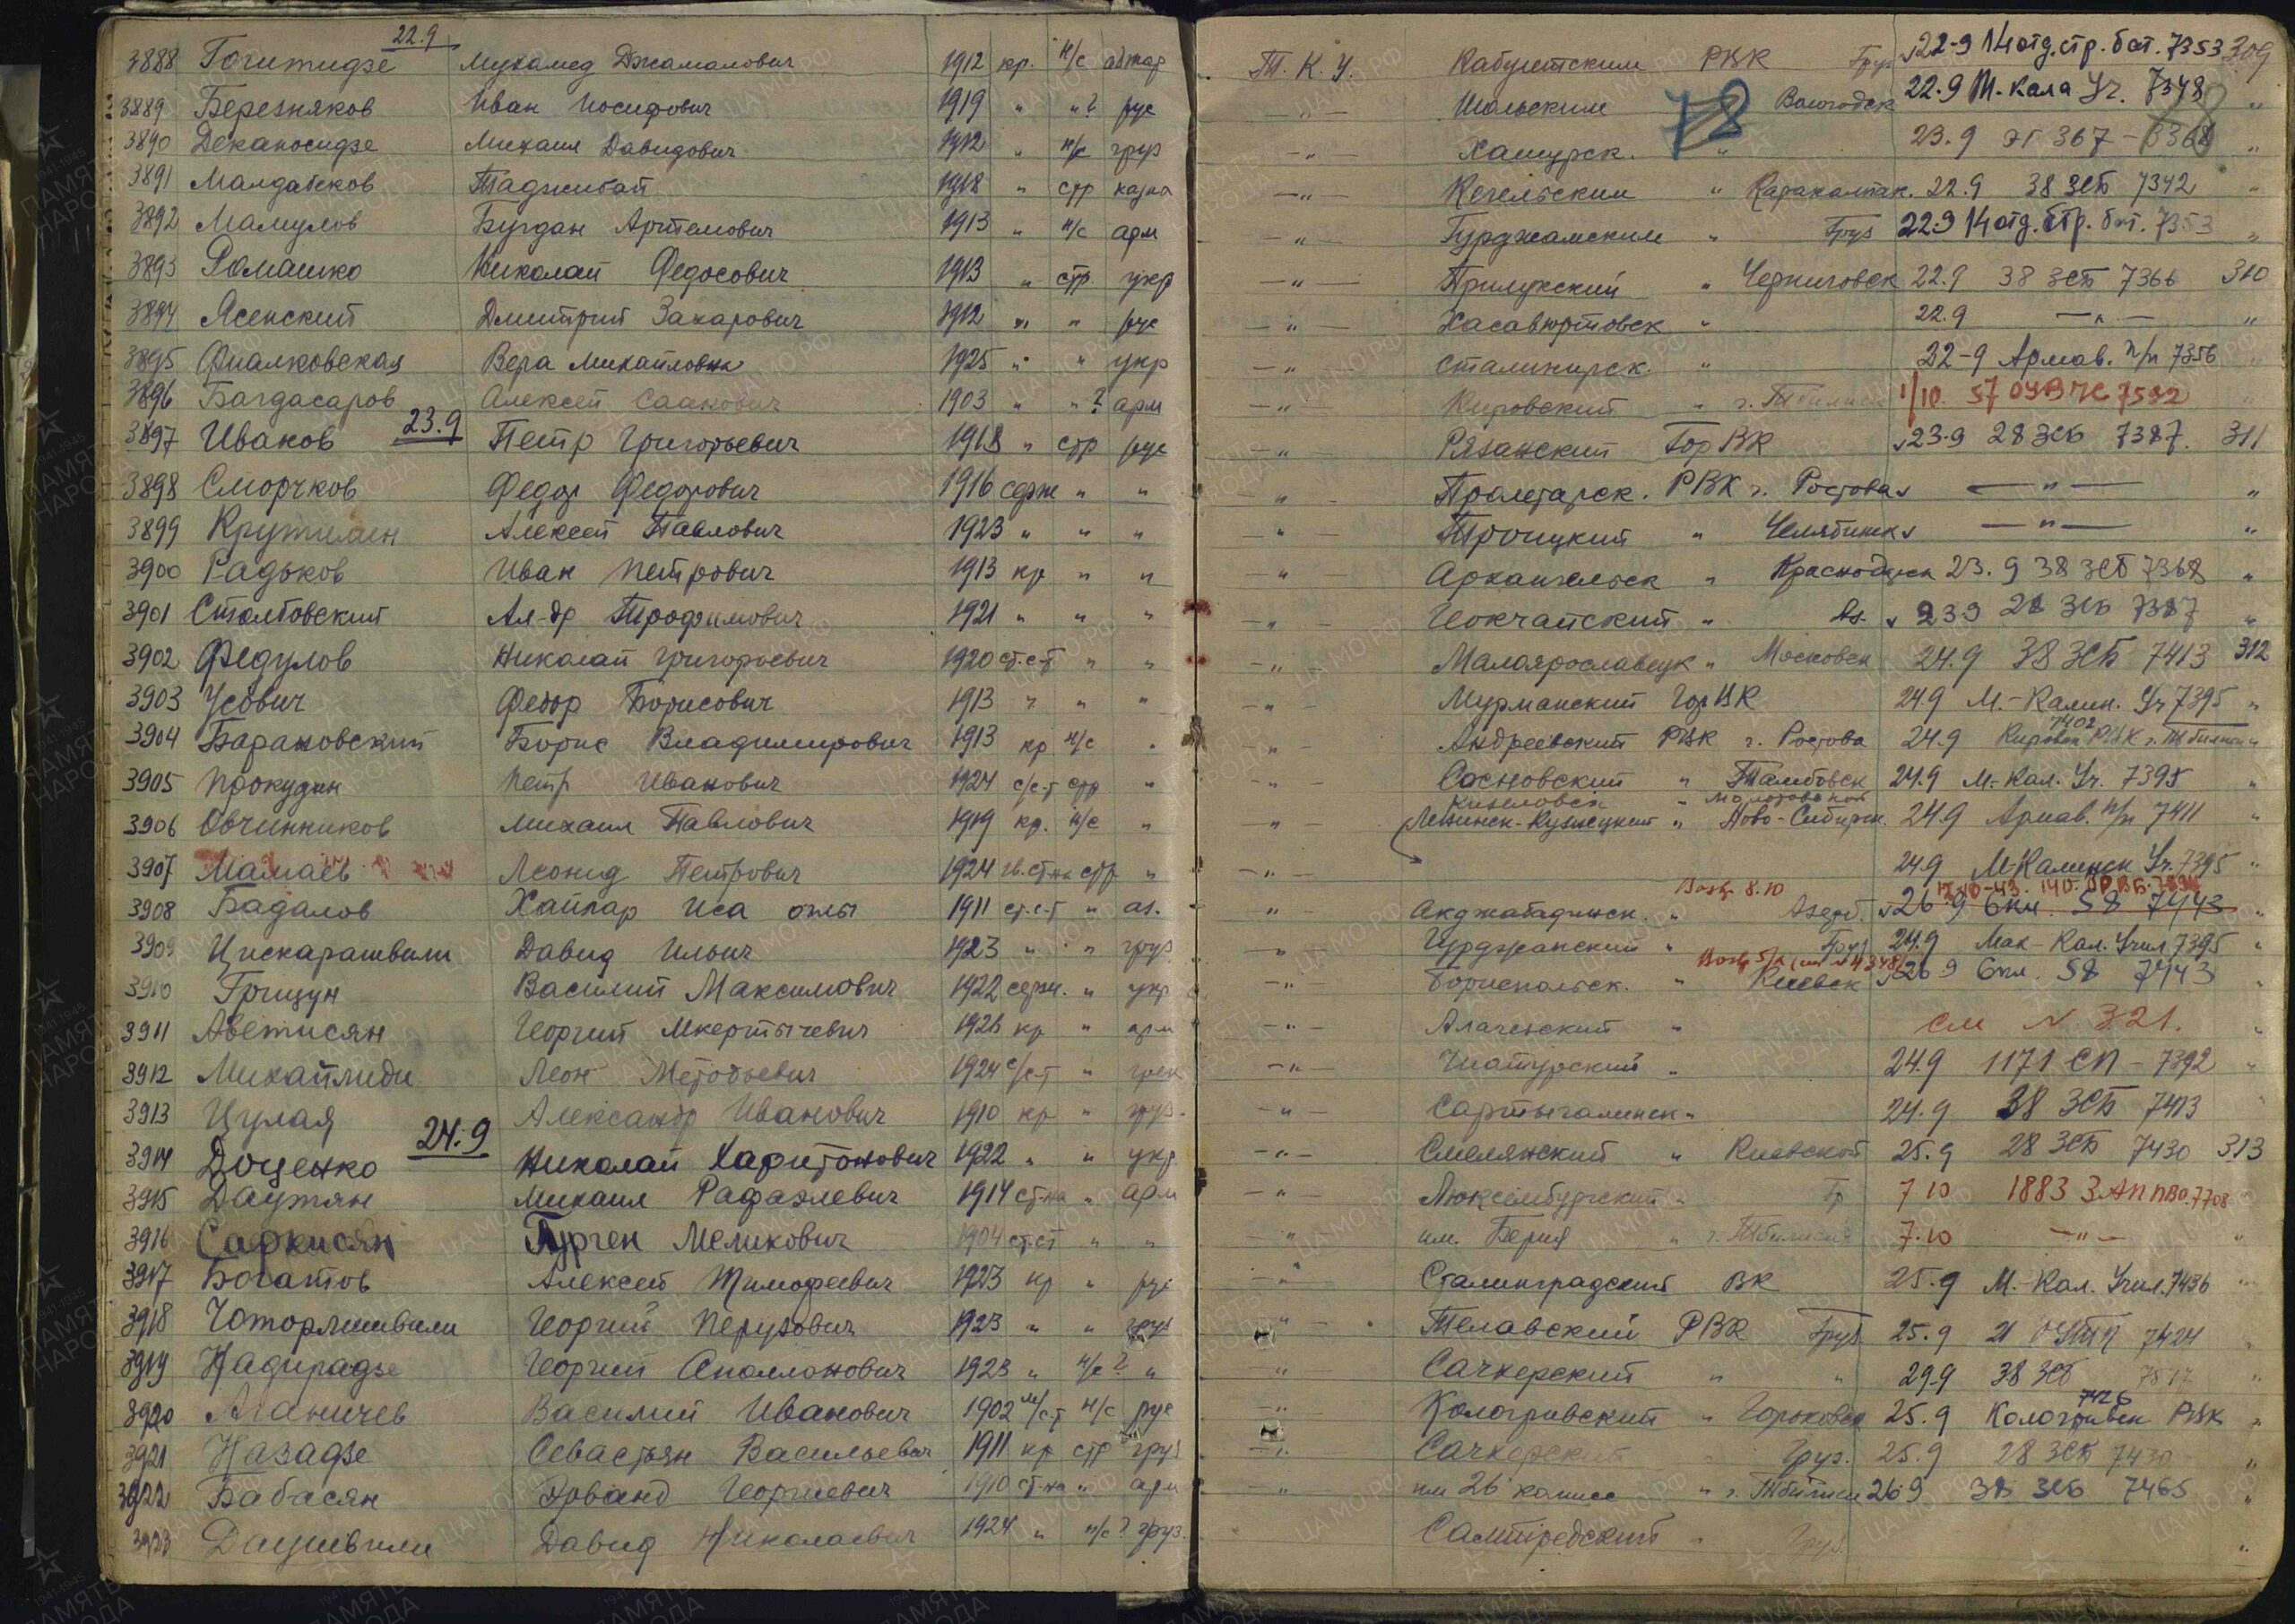 22.9
3888 Гогитидзе Мухамед Джамалович 1912 кр. н/с аджар Т. К. У. Кабулетским РВК Груз 22-9 14 отд. стр. бат. 7353 309
3889 Березняков Иван Иосифович 1919 " "? рус —"— Шольским " Вологодск 22.9 М-Кала Уч. 7348 "
78
3890 Деканосидзе Михаил Давидович 1912 " н/с груз —"— Хашурск. " 23.9 эг 367 – "
3891 Малдабеков Таджибай 1918 " стр казах —"— Кегельским " Каракалпак. 22.9 38 ЗСБ 7342 "
3892 Мамулов Бугдан Артемович 1913 " н/с арм —"— Гурджаанским " Груз 22.9 14 отд. стр. бат. 7353 "
3893 Ромашко Николай Федосович 1913 " стр. укр —"— Прилукский " Черниговск 22.9 38 ЗСБ 7366 310
3894 Ясенский Дмитрий Захарович 1912 " " рус —"— Хасавюртовск " 22.9 —"— "
3895 Фиалковская Вера Михайловна 1925 " " укр —"— Сталинирск. " 22-9 Армав. п/п 7356 "
3896 Багдасаров Алексей Саакович 1903 " "? арм —"— Кировский " г. Тбилиси 1/10. 57 7592 "
23.9
3897 Иваков Петр Григорьевич 1918 " стр рус —"— Рязанский ГорВК 23-9 28 ЗСБ 7387. 311
3898 Сморчков Федор Федорович 1916 серж " " —"— Пролетарск. РВК г. Ростова —"— "
3899 Алексей Павлович 1923 " " " —"— Троицкий " Челябинск —"— "
3900 Радьков Иван Петрович 1913 кр " " —"— Архангельск " Краснодарск 23.9 38 ЗСБ 7368 "
3901 Столбовский Ал-др Трофимович 1921 " " " —"— Геокчайский " Аз. 23.9 28 ЗСБ 7387 "
3902 Федулов Николай Григорьевич 1920 ст.с-т " " —"— Малоярославецк " Московск 24.9 38 ЗСБ 7413 312
3903 Усович Федор Борисович 1913 " " " —"— Мурманский ГорВК 24.9 М.-Калин. Уч 7395 "
3904 Барановский Борис Владимирович 1913 кр н/с " —"— Андреевский РВК г. Ростова 24.9 7402 Кировск РВК г. Тбилиси "
3905 Прокудин Петр Иванович 1924 с/с-т стр " —"— Сосновский " Тамбовск 24.9 М.-Кал. Уч. 7395 "
Кизеловск " Молотовской
3906 Овчинников Михаил Павлович 1919 кр. н/с " —"— Ленинск-Кузнецкий " Ново-Сибирск. 24.9 Армав. п/п 7411 "
3907 Мамаев Леонид Петрович 1924 гв. ст-на стр " —"— 24.9 М-Калинск Уч. 7395 "
Возвр. 8.10
3908 Бадалов Хайпар Иса оглы 1911 ст.с-т " аз. " Акджабадинск. " Азерб. 26.9 58 7443 "
3909 Цискарашвили Давид Ильич 1923 " " груз —"— Гурджаанский " Груз 24.9 Мах-Кал. Учил 7395 "
3910 Грицун Василий Максимович 1922 серж. " укр —"— Бориспольск. " Киевск 26.9 58 7443 "
3911 Аветисян Георгий Мкертычевич 1926 кр " арм —"— " см N 321. "
3912 Михайлиди Леон Метобьевич 1924 с/с-т " грек —"— Чиатурский " 24.9 1171 СП – 7392 "
3913 Цулая Александр Иванович 1910 кр " груз. —"— 24.9 38 ЗСБ 7413 "
24.9
3914 Доценко Николай Харитонович 1922 " " укр. —"— Смелянский " Киевской 25.9 28 ЗСБ 7430 313
3915 Даутян Михаил Рафаэлевич 1914 ст-на " арм —"— Люксембургский " Гр 7.10 1883 ЗАП ПВО. 7708 "
3916 Саркисян Гурген Меликович 1904 ст.ст " " —"— им. Берия " г. Тбилиси 7.10 —"— "
3917 Богатов Алексей Тимофеевич 1923 кр " рус —"— Сталинградский ВК 25.9 М.-Кал. Учил. 7436 "
3918 Чоторлишвили Георгий Перузович 1923 " " груз " Телавский РВК Груз 25.9 21 7424 "
3919 Надирадзе Георгий Аполлонович 1923 " н/с? " —"— Сачхерский " " 29.9 38 ЗСБ "
3920 Аганичев Василий Иванович 1902 мл/с-т н/с рус —"— Кологривский " Горьковск 25.9 7426 Кологривск РВК "
3921 Назадзе Севастьян Васильевич 1911 кр стр груз —"— Сачхерский " Груз. 25.9 28 ЗСБ 7430 "
3922 Бабасян Эрванд Георгиевич 1910 ст-на " арм —"— им 26 комисс " г. Тбилиси 26.9 38 ЗСБ 7465 "
3923 Давид Николаевич 1924 " н/с? груз. Самтредский " Груз. "